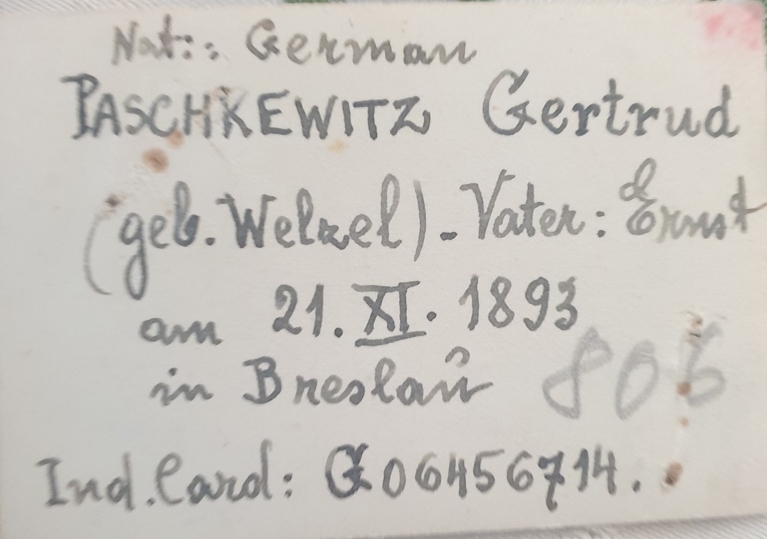 Nat:: German
PASCHKEWITZ Gertrud
(geb. Welzel) - Vater: Ernst
am 21. XI. 1893
in Breslau 806
Ind. Card: G06456714.